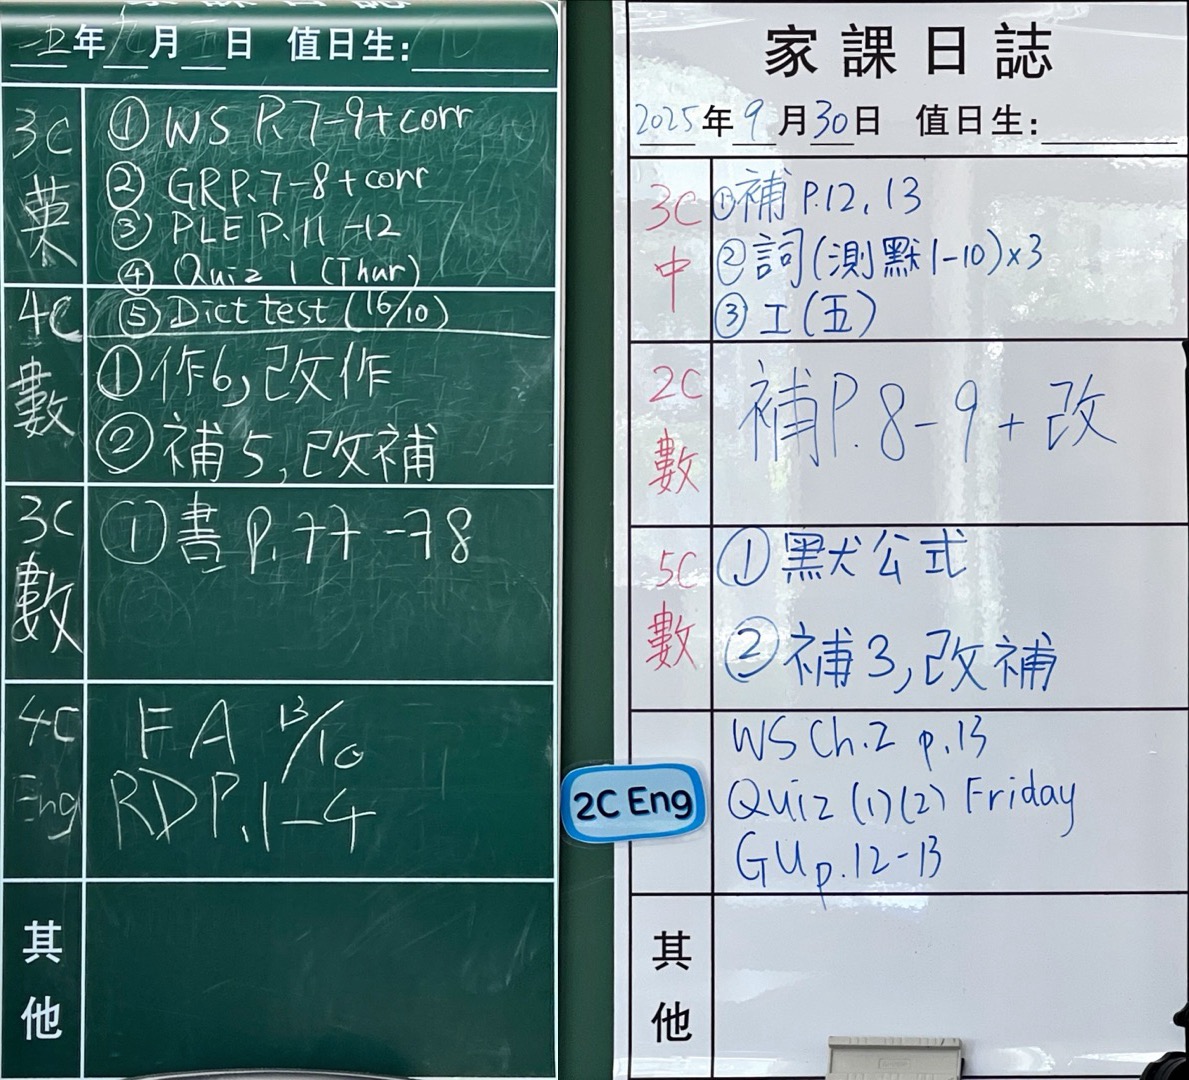 年 月 日 值日生:
3C
英
① WS P.7-9+corr
② GR P.7-8+corr
③ PLE P.11-12
④ Quiz 1 (Thur)
⑤ Dict test (16/10)
4C
數
① 作6,改作
② 補5,改補
3C
數
① 書 P.77-78
4C
Eng
FA 13/10
RD P.1-4
其
他
家課日誌
2025年9月30日 值日生:
3C
中
①補 P.12,13
②詞(測默1-10)x3
③工(五)
2C
數
補P.8-9+改
5C
數
①默公式
②補3,改補
2C Eng
WS Ch.2 p.13
Quiz (1)(2) Friday
GU p.12-13
其
他